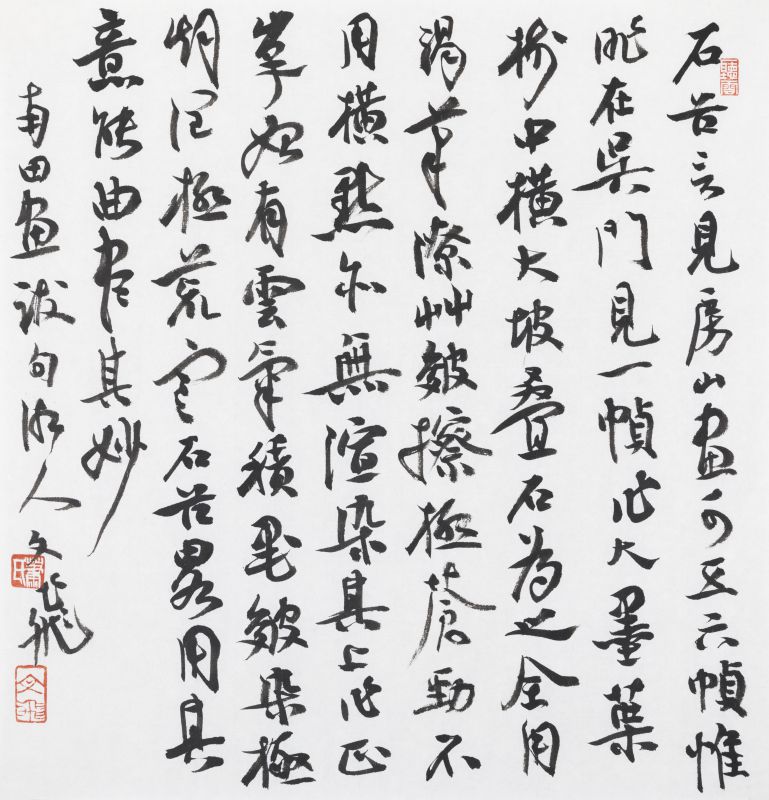 石谷言見房山畫可五六幀惟
昨在吳門見一幀作大墨葉
樹中橫大坡疊石為之全用
渴筆潦艸皴擦極蒼勁不
用橫點亦無渲染其上作正
峯始有雲氣積墨皴染極
烟潤極荒寒石谷畧用其
意能曲盡其妙
南田畫跋句湘人文飛
蕭印
文飛